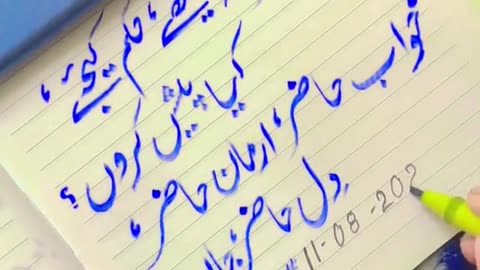 حکم کیجئے،
کیا پیش کروں؟
خواب حاضر، ارمان حاضر،
دل حاضر،
11-08-202